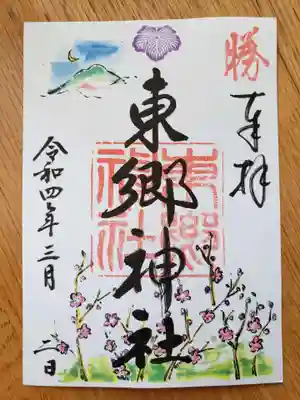 勝
奉拝
東郷神社
東郷神社
令和四年三月二日